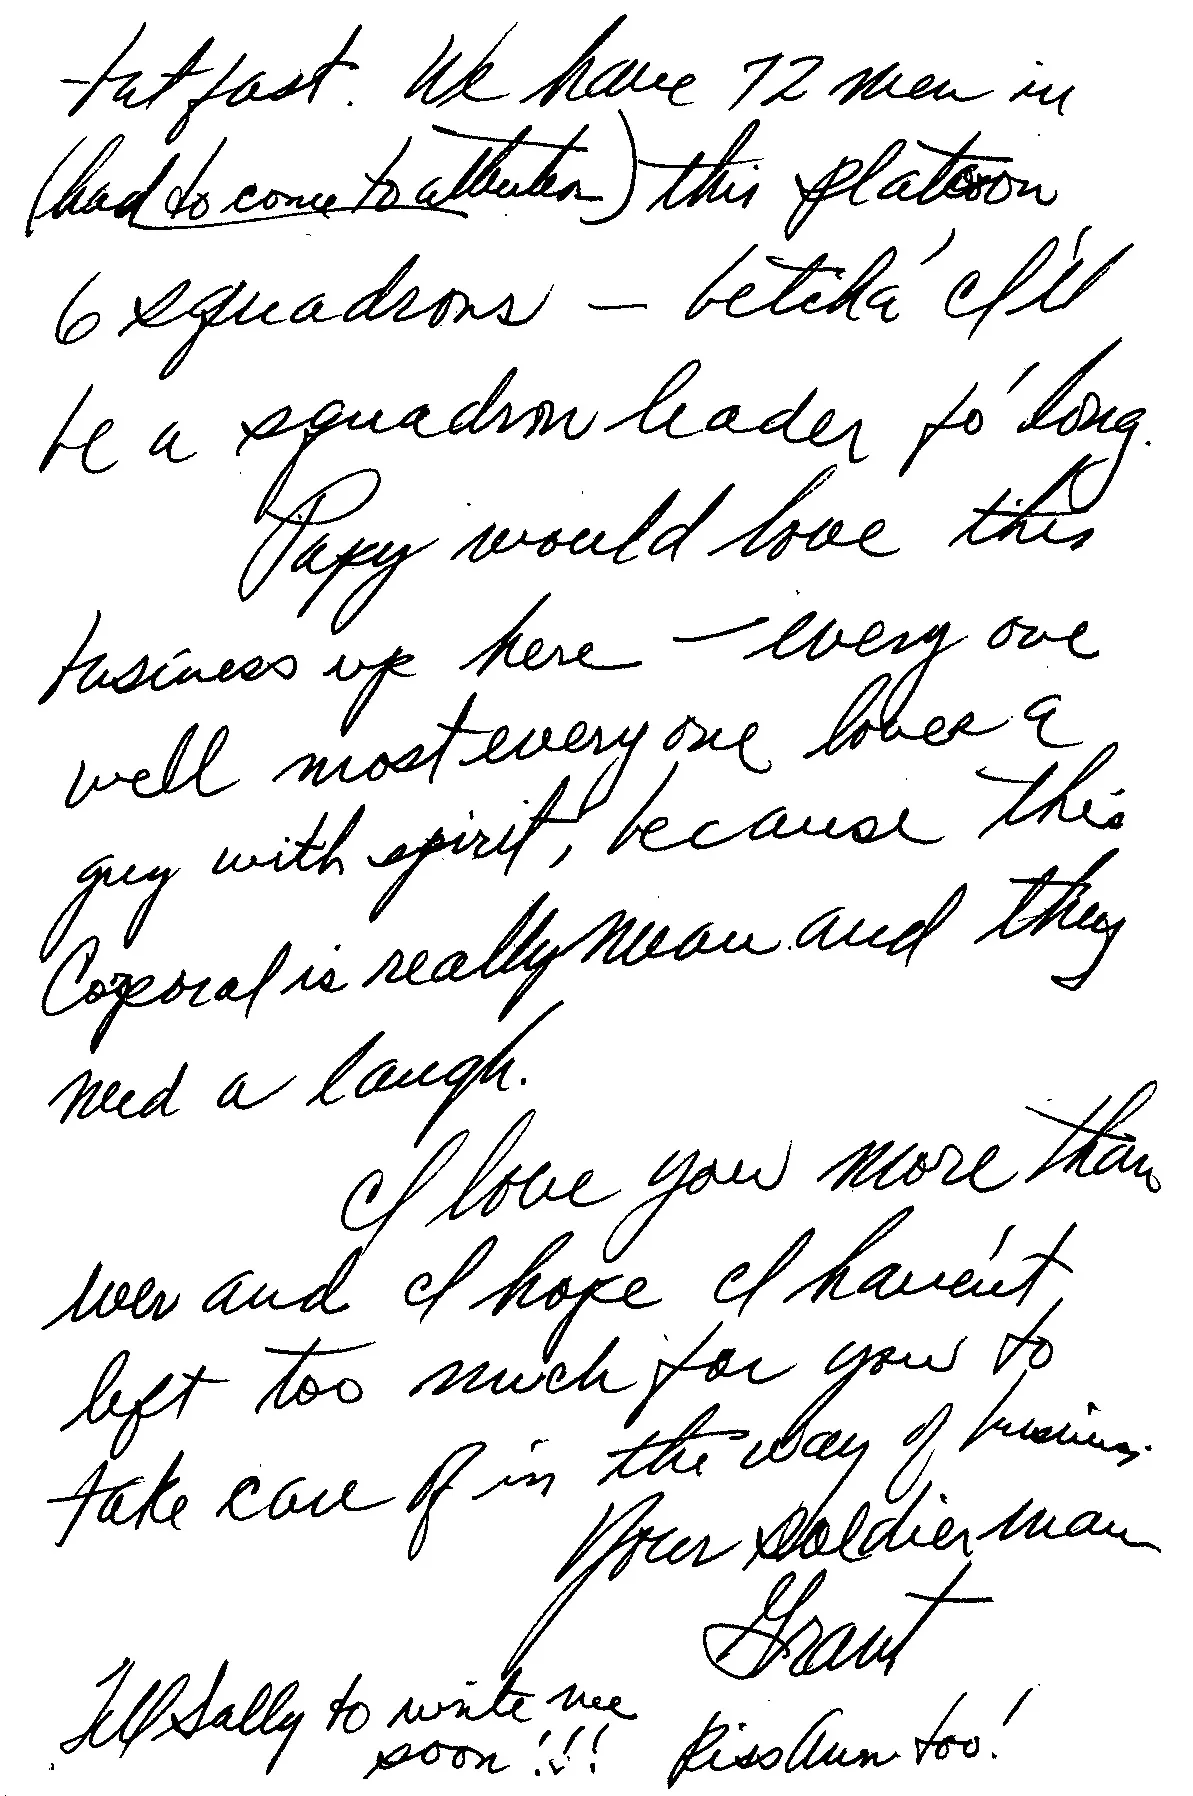 but fast. We have 72 men in
(had to come to attention) this platoon
6 squadrons – betcha' I'll
be a squadron leader fo' long.
Papy would love this
business up here – every one
well most everyone loves a
guy with spirit, because this
Corporal is really mean and they
need a laugh.
I love you more than
ever and I hope I haven't
left too much for you to
take care of in the way of business.
Your soldier man
Grant
Tell Sally to write me
soon!!! Kiss Ann too!